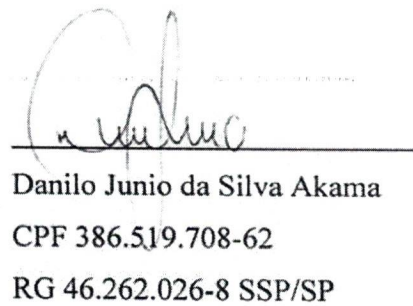 Danilo Junio da Silva Akama
CPF 386.519.708-62
RG 46.262.026-8 SSP/SP